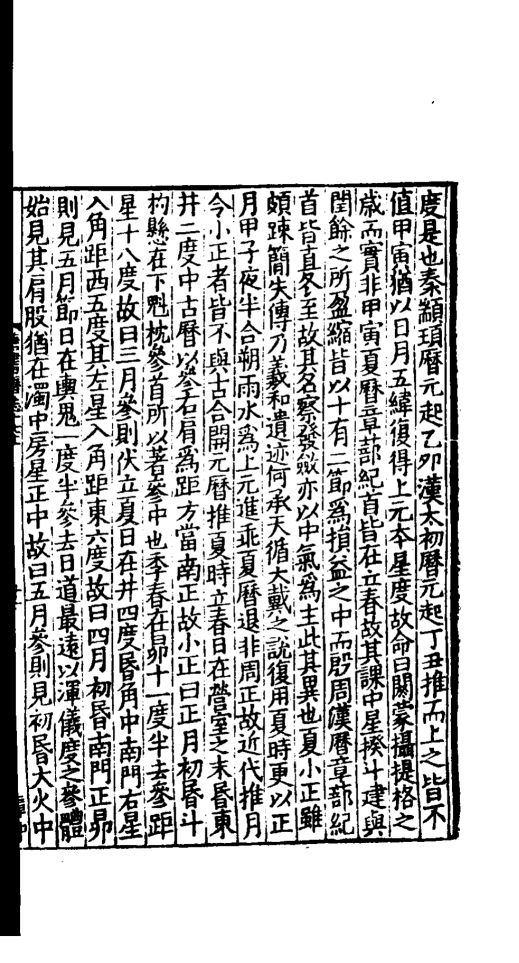 度是也秦顓頊曆元起乙卯漢太初曆元起丁丑推而上之皆不
值甲寅猶以日月五緯復得上元本星度故命曰閼蒙攝提格之
歲而實非甲寅夏曆章蔀紀首皆在立春故其課中星揆斗建與
閏餘之所盈縮皆以十有二節爲損益之中而殷周漢曆章蔀紀
首皆直冬至故其名察發斂亦以中氣爲主此其異也夏小正雖
頗踈簡失傳乃羲和遺迹何承天循大戴之說復用夏時更以正
月甲子夜半合朔雨水爲上元進乖夏曆退非周正故近代推月
令小正者皆不與古合開元曆推夏時立春日在營室之末昬東
井二度中古曆以參右肩爲距方當南正故小正曰正月初昬斗
杓懸在下魁枕參首所以著參中也季春在昴十一度半去參距
星十八度故曰三月參則伏立夏日在井四度昬角中南門右星
入角距西五度其左星入角距東六度故曰四月初昬南門正昴
則見五月節日在輿鬼一度半參去日道最遠以渾儀度之參體
始見其肩股猶在濁中房星正中故曰五月參則見初昬大火中